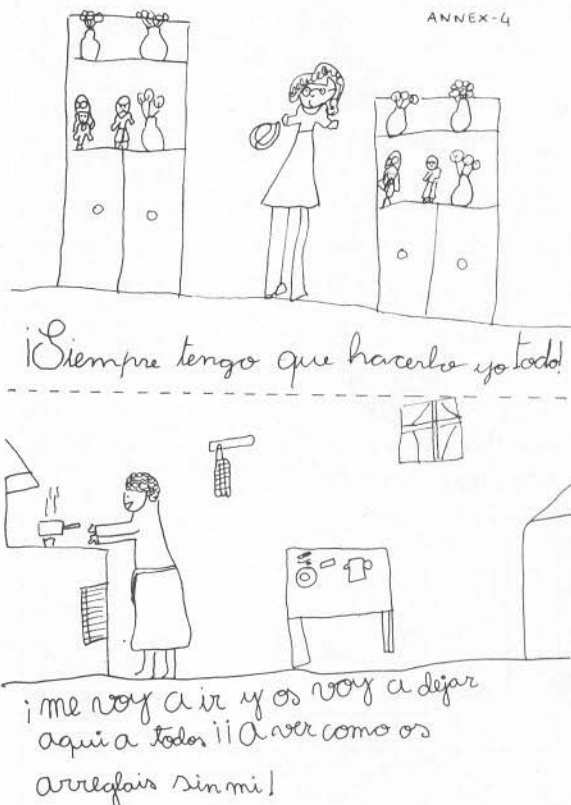 ANNEX-4
¡Siempre tengo que hacerlo yo todo!
¡me voy a ir y os voy a dejar
aqui a todos ¡¡A ver como os
arreglais sin mi!